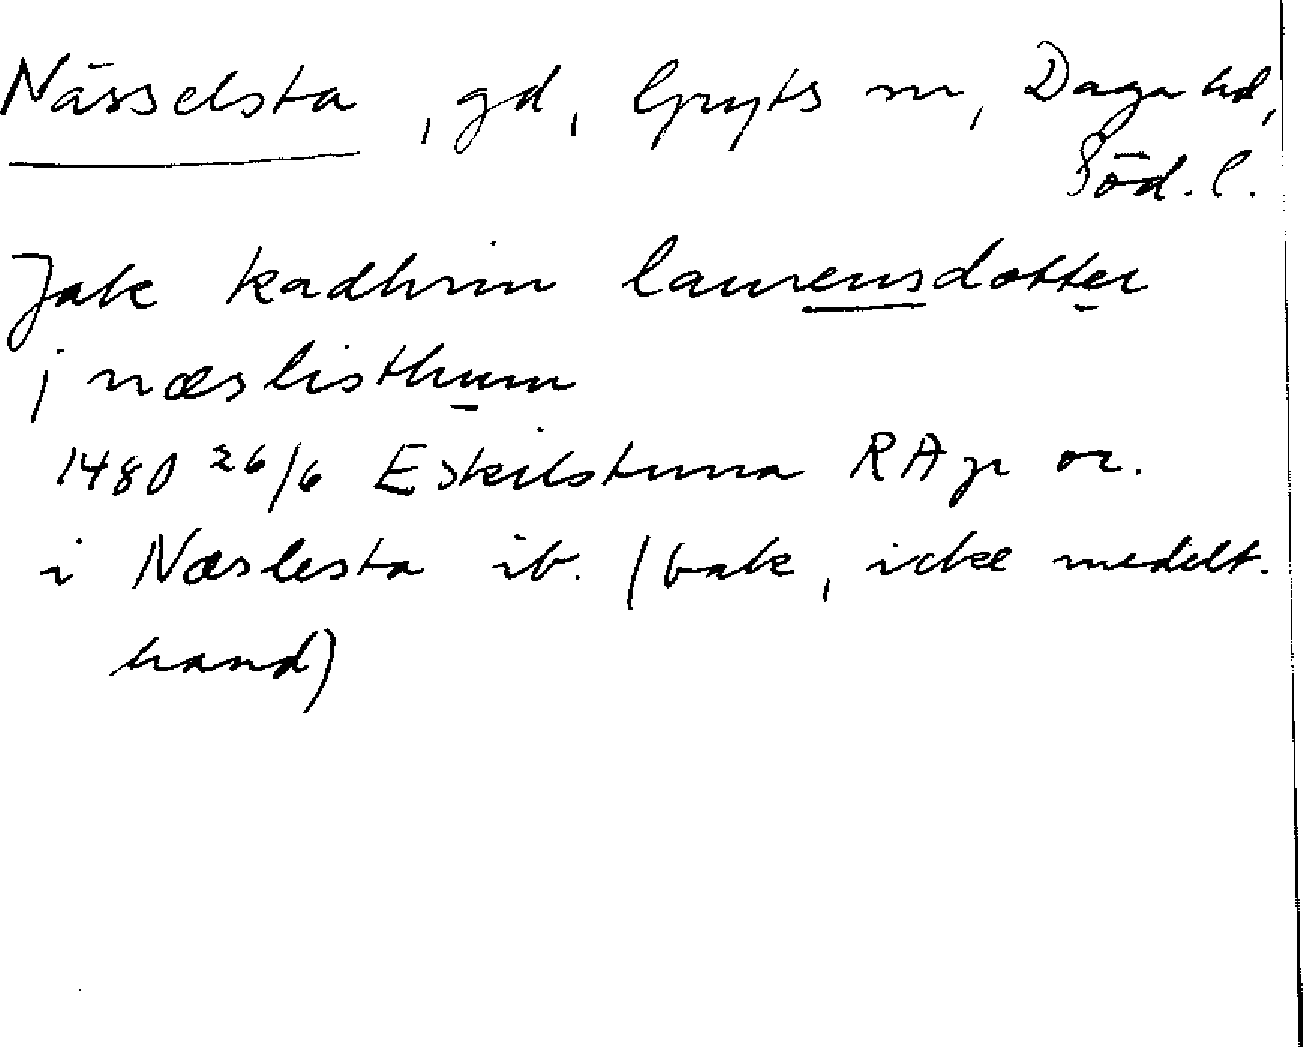 Nässelsta, gd, Gryts sn, Daga hd,
Söd. l.
Jak kadhrin laurensdotter
j næslisthum
1480 26/6 Eskilstuna RAp or.
i Næslesta ib. (bak, icke medelt.
hand)